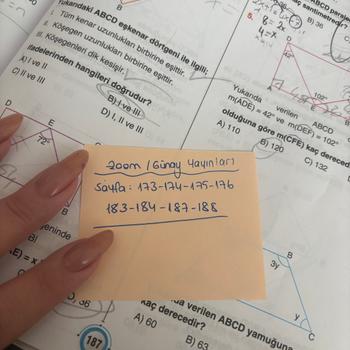 Yukarıdaki ABCD eşkenar dörtgeni ile ilgili;
I. Tüm kenar uzunlukları birbirine eşittir.
II. Köşegen uzunlukları birbirine eşittir.
III. Köşegenleri dik kesişir.
ifadelerinden hangileri doğrudur?
A) I ve II
B) I ve III
C) II ve III
D) I, II ve III
B) 36
5.
42°
102°
ABCD
Yukarıda verilen
m(ADE) = 42° ve m(DEF) = 102°
olduğuna göre m(CFE) kaç derecedir
A) 110
B) 120
C) 132
D
E
72°
B
zoom / Günay Yayınları
Sayfa : 173-174-175-176
183-184-187-188
B
3y
y
C
D) 36
da verilen ABCD yamuğuna
kaç derecedir?
A) 60
B) 63
187